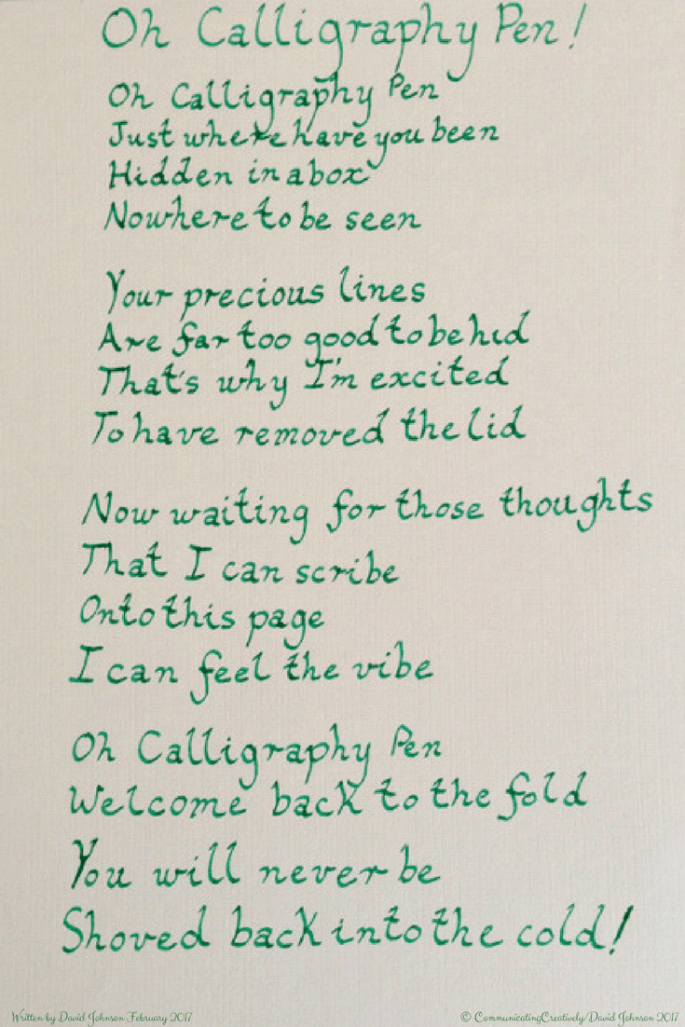 Oh Calligraphy Pen!
Oh Calligraphy Pen
Just where have you been
Hidden in a box
Nowhere to be seen
Your precious lines
Are far too good to be hid
That's why I'm excited
To have removed the lid
Now waiting for those thoughts
That I can scribe
Onto this page
I can feel the vibe
Oh Calligraphy Pen
Welcome back to the fold
You will never be
Shoved back into the cold!
Written by David Johnson February 2017
© CommunicatingCreatively/David Johnson 2017